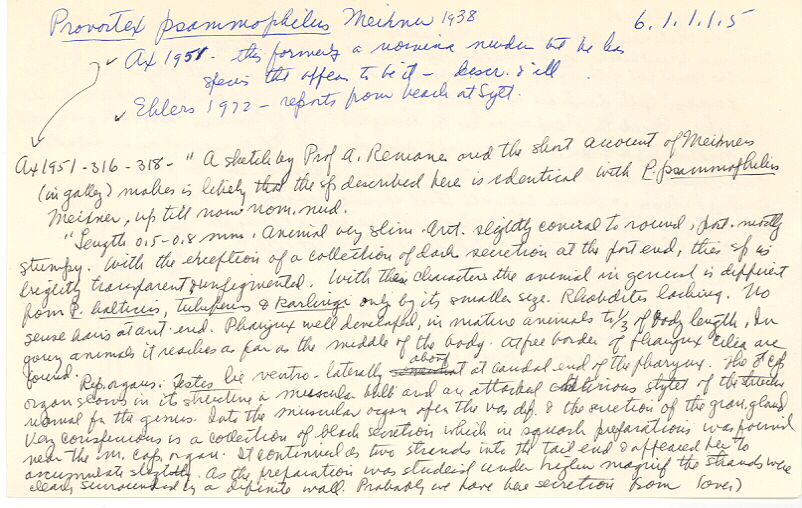 Provortex psammophilus Meixner 1938 6.1.1.1.5
Ax 1951 - this formerly a nomina nudum but he has
species that appears to be it - descr. & ill
Ehlers 1972 - reports from beach at Sylt.
Ax 1951 - 316 - 318 - " A sketch by Prof A. Remane and the short account of Meixners
(in galley) makes is likely that the sp described here is identical with P. psammophilus
Meixner, up till now nom. nud.
"Length 0.5-0.8 mm. Animal very slim. Ant. slightly conical to round, post. mostly
stumpy. With the exception of a collection of dark secretion at the post end, this sp is
brightly transparent & unpigmented. With these characters the animal in general is different
from P. balticus, tubiferus & karlingi only by its smaller size. Rhabdites lacking. No
sense hairs at ant. end. Pharynx well developed, in mature animals to 1/3 of body length, In
young animals it reaches as far as the middle of the body. At free border of pharynx cilia are
found.
Rep. organs: Testes lie ventro-laterally about at caudal end of the pharynx. The ♂ cop
organ shows in its structure a muscular bulb and an attached chitinous stylet of the structure
normal for the genus. Into the muscular organ open the vas def. & the secretion of the gran. gland
Very conspicuous is a collection of black secretion which in squash preparations was found
near the m. cop. organ. It continued as two strands into the tail end & appeared here to
accumulate slightly. As the preparation was studied under higher magnif the strands were
clearly surrounded by a definite wall. Probably we have here secretion from (over)